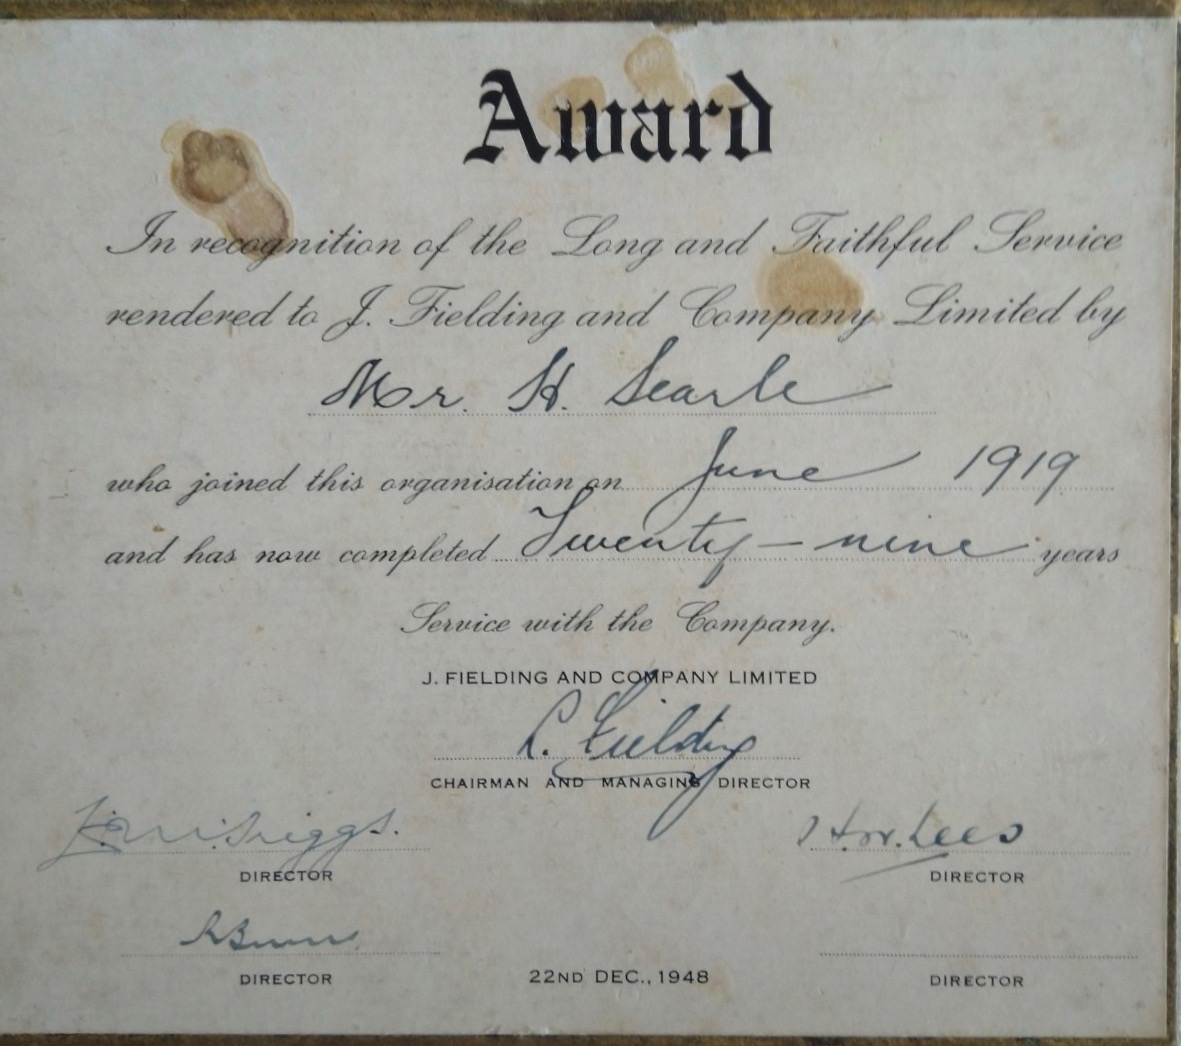 Award
In recognition of the Long and Faithful Service
rendered to J. Fielding and Company Limited by
Mr. H. Searle
who joined this organisation on June 1919
and has now completed Twenty-nine years
Service with the Company.
J. FIELDING AND COMPANY LIMITED
Fielding
CHAIRMAN AND MANAGING DIRECTOR
H. W. Lees
DIRECTOR DIRECTOR
DIRECTOR 22ND DEC., 1948 DIRECTOR